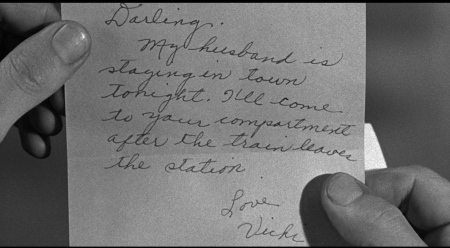 Darling.
My husband is
staying in town
tonight. I'll come
to your compartment
after the train leaves
the station.
Love
Vicki